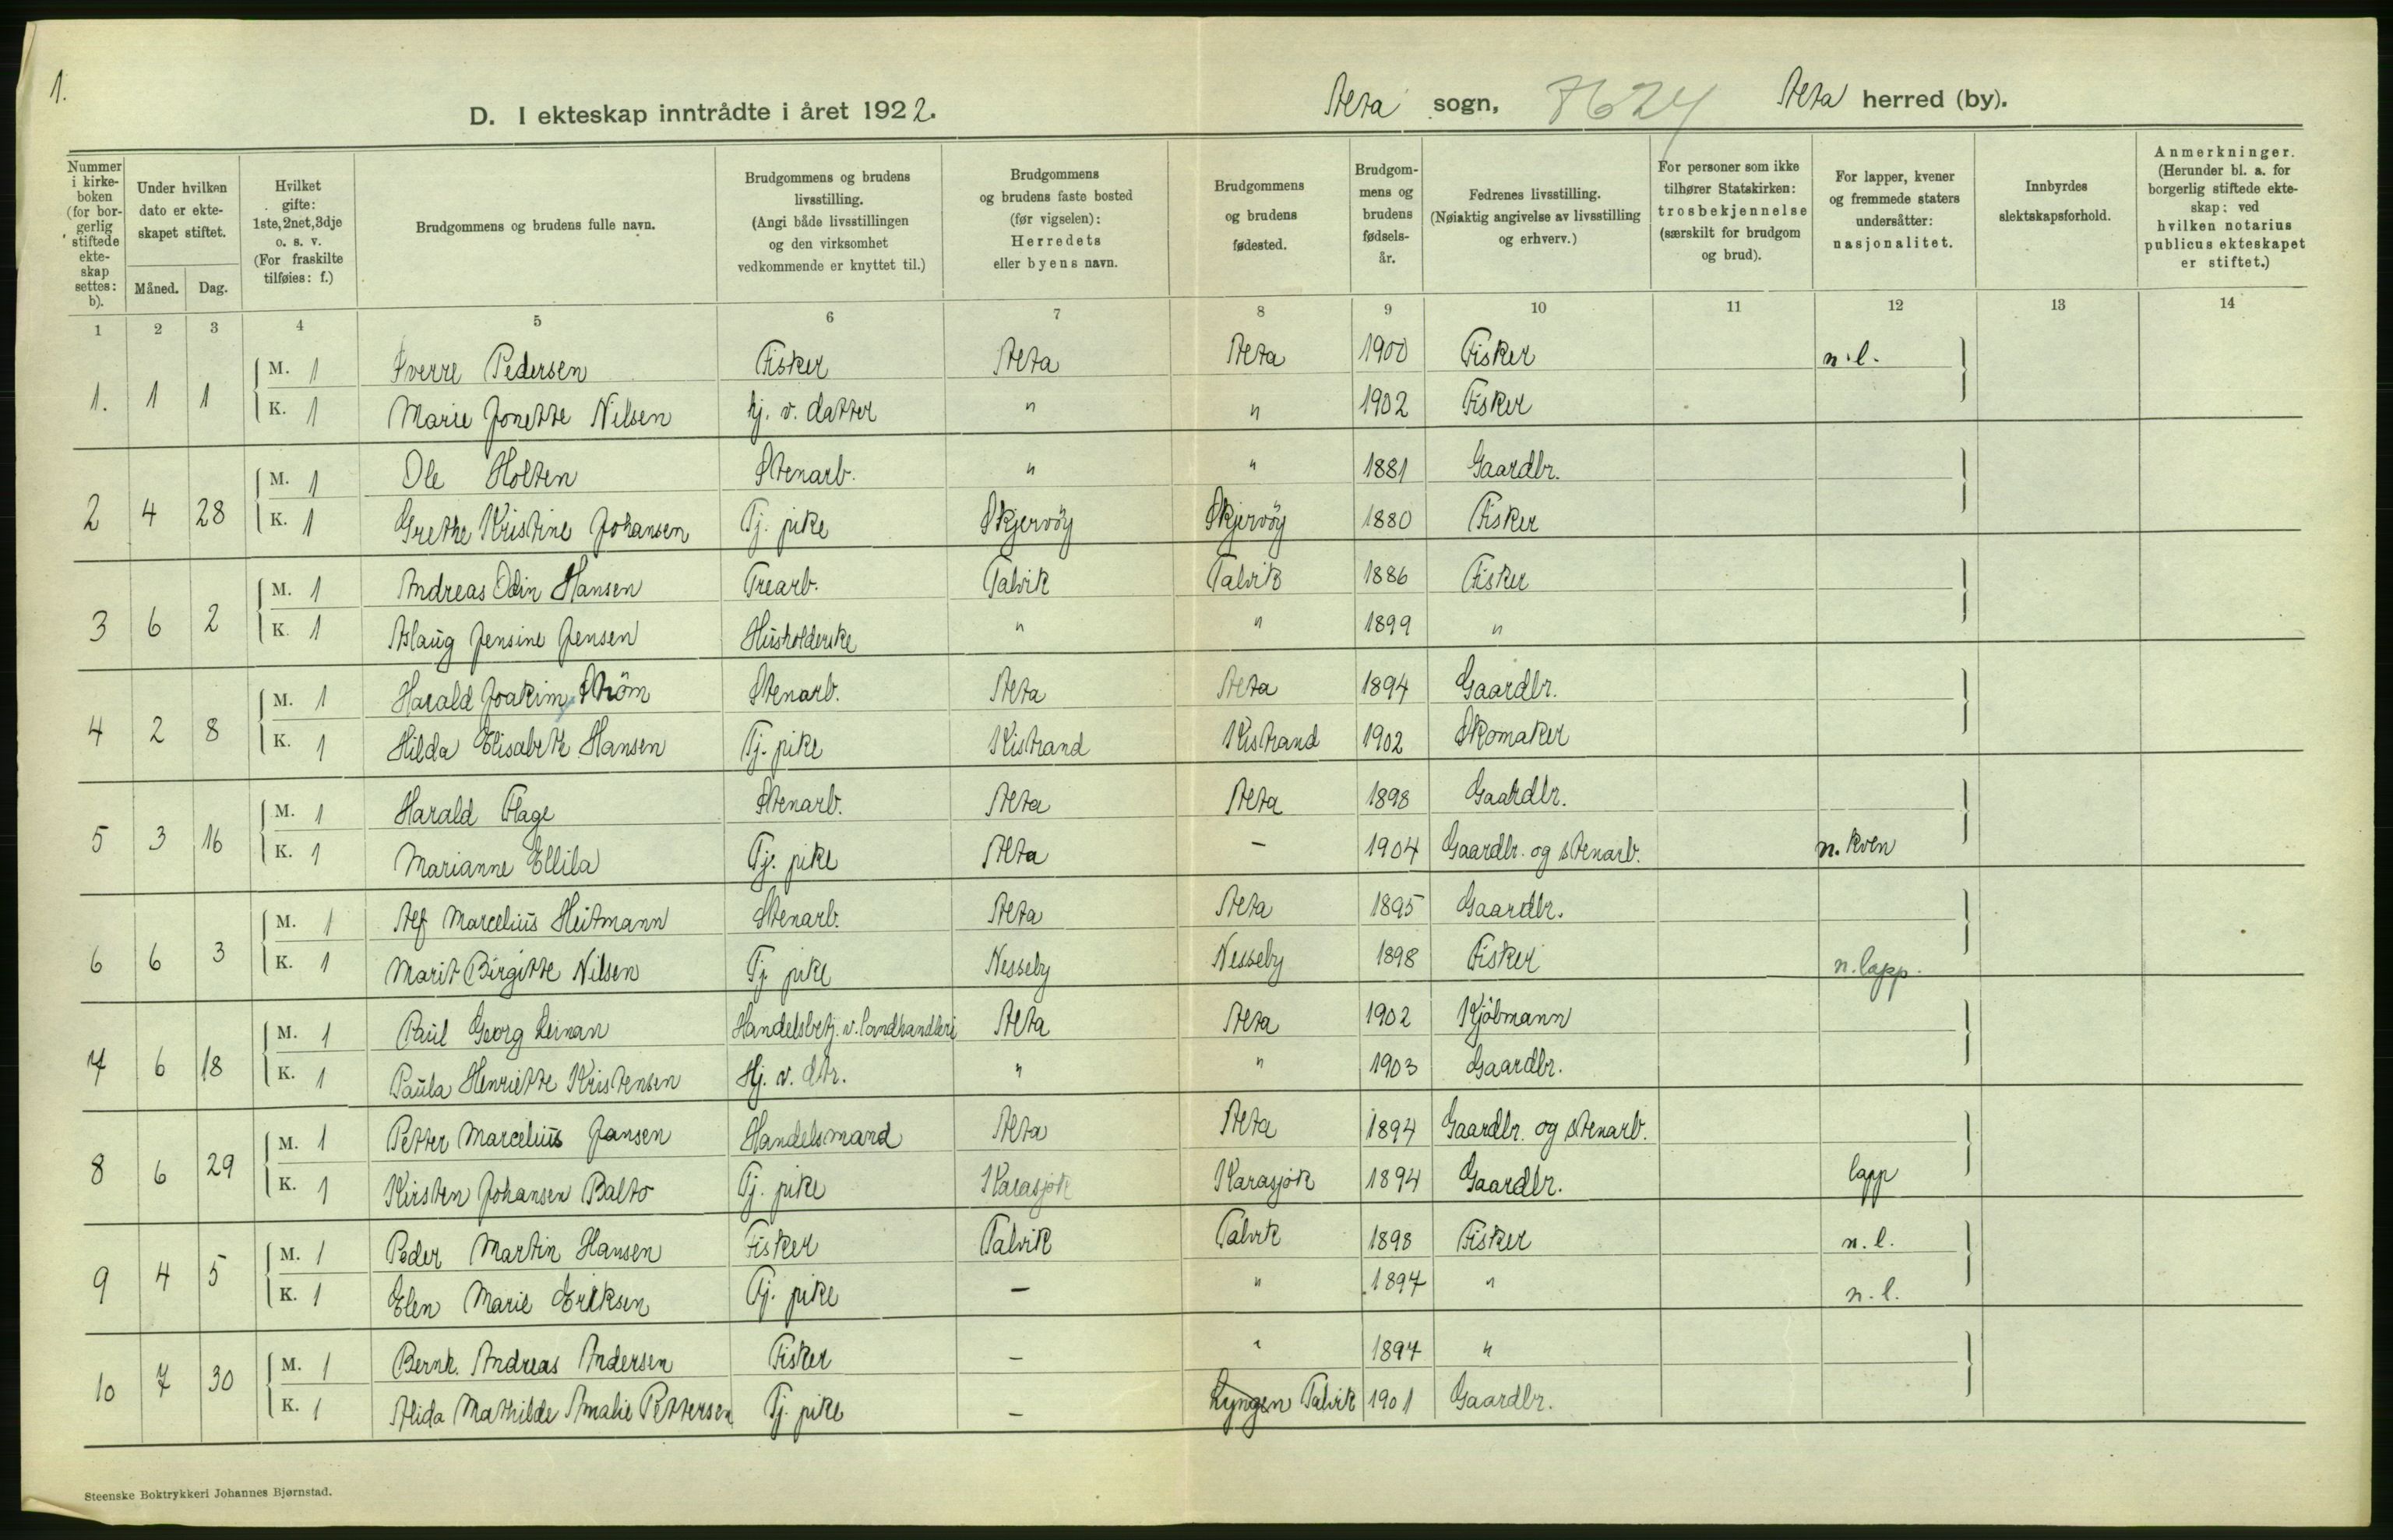 1.
D. I ekteskap inntrådte i året 1922. Alta sogn, 7624 Alta herred (by).
Nummer i kirke-boken (for bor-gerlig stiftede ekte-skap settes: b).
Under hvilken dato er ekte-skapet stiftet.
Måned. Dag.
Hvilket gifte: 1ste, 2net, 3dje o. s. v. (For fraskilte tilføies: f.)
Brudgommens og brudens fulle navn.
Brudgommens og brudens livsstilling. (Angi både livsstillingen og den virksomhet vedkommende er knyttet til.)
Brudgommens og brudens faste bosted (før vigselen): Herredets eller byens navn.
Brudgommens og brudens fødested.
Brudgom-mens og brudens fødsels-år.
Fedrenes livsstilling. (Nøiaktig angivelse av livsstilling og erhverv.)
For personer som ikke tilhører Statskirken: trosbekjennelse (særskilt for brudgom og brud).
For lapper, kvener og fremmede staters undersåtter: nasjonalitet.
Innbyrdes slektskapsforhold.
Anmerkninger. (Herunder bl. a. for borgerlig stiftede ekte-skap: ved hvilken notarius publicus ekteskapet er stiftet.)
1 2 3 4 5 6 7 8 9 10 11 12 13 14
1. 1 1 M. 1 Sverre Pedersen Fisker Alta Alta 1900 Fisker n.l.
K. 1 Marie Jonette Nilsen hj. v. datter " " 1902 Fisker
2 4 28 M. 1 Ole Holten Stenarb. " " 1881 Gaardbr.
K. 1 Grethe Kristine Johansen Tj. pike Skjervöy Skjervöy 1880 Fisker
3 6 2 M. 1 Andreas Odin Hansen Trearb. Talvik Talvik 1886 Fisker
K. 1 Aslaug Jensine Jensen Husholderske " " 1899 "
4 2 8 M. 1 Harald Joakim Ström Stenarb. Alta Alta 1894 Gaardbr.
K. 1 Hilda Elisabeth Hansen Tj. pike Kistrand Kistrand 1902 Skomaker
5 3 16 M. 1 Harald Flage Stenarb. Alta Alta 1898 Gaardbr.
K. 1 Marianne Ellila Tj. pike Alta - 1904 Gaardbr. og stenarb. n. kven
6 6 3 M. 1 Alf Marcelius Heitmann Stenarb. Alta Alta 1895 Gaardbr.
K. 1 Marit Birgitte Nilsen Tj. pike Nesseby Nesseby 1898 Fisker n. lapp.
7 6 18 M. 1 Paul Georg Leinan Handelsbetj. v. landhandleri Alta Alta 1902 Kjöbmann
K. 1 Paula Henriette Kristensen Hj. v. dtr. " " 1903 Gaardbr.
8 6 29 M. 1 Petter Marcelius Jansen Handelsmand Alta Alta 1894 Gaardbr. og stenarb.
K. 1 Kirsten Johansen Balto Tj. pike Karasjok Karasjok 1894 Gaardbr. lapp
9 4 5 M. 1 Peder Martin Hansen Fisker Talvik Talvik 1898 Fisker n. l.
K. 1 Elen Marie Eriksen Tj. pike - " 1897 " n. l.
10 7 30 M. 1 Bernh. Andreas Andersen Fisker - " 1897 "
K. 1 Alida Mathilde Amalie Pettersen Tj. pike - Lyngen Talvik 1901 Gaardbr.
Steenske Boktrykkeri Johannes Bjørnstad.